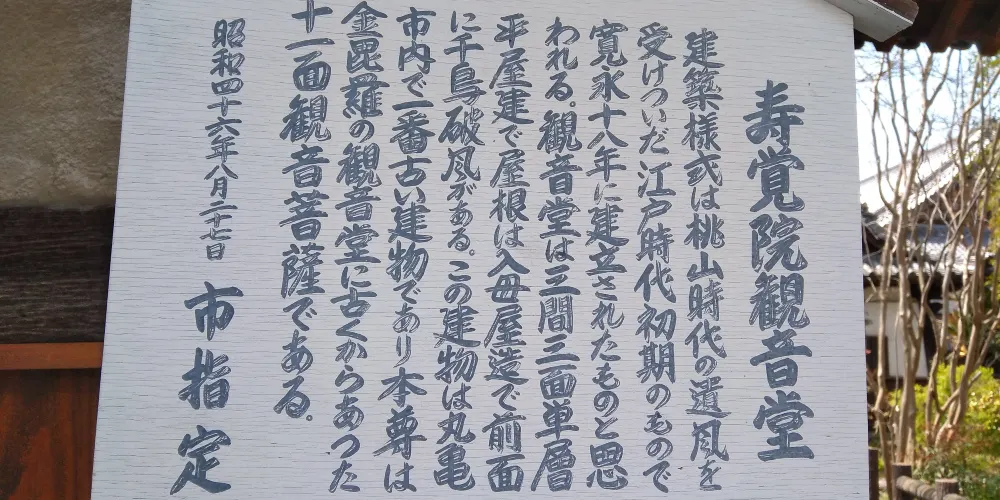 寿覚院観音堂
建築様式は桃山時代の遺風を
受けついだ江戸時代初期のもので
寛永十八年に建立されたものと思
われる。観音堂は三間三面単層
平屋建で屋根は入母屋造で前面
に千鳥破風がある。この建物は丸亀
市内で一番古い建物であり本尊は
金毘羅の観音堂に古くからあった
十一面観音菩薩である。
昭和四十六年八月二十七日 市指定